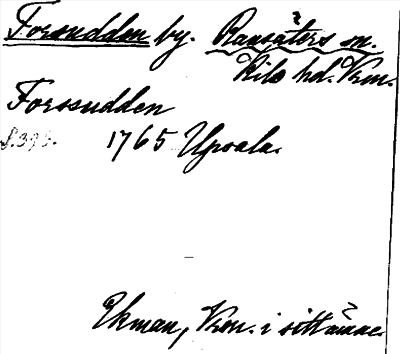 Forsudden by. Ransäters sn.
Kils hd. Vrm.
Forssudden
1765 Upsala.
Ekman, Vrm. i sitt ämne